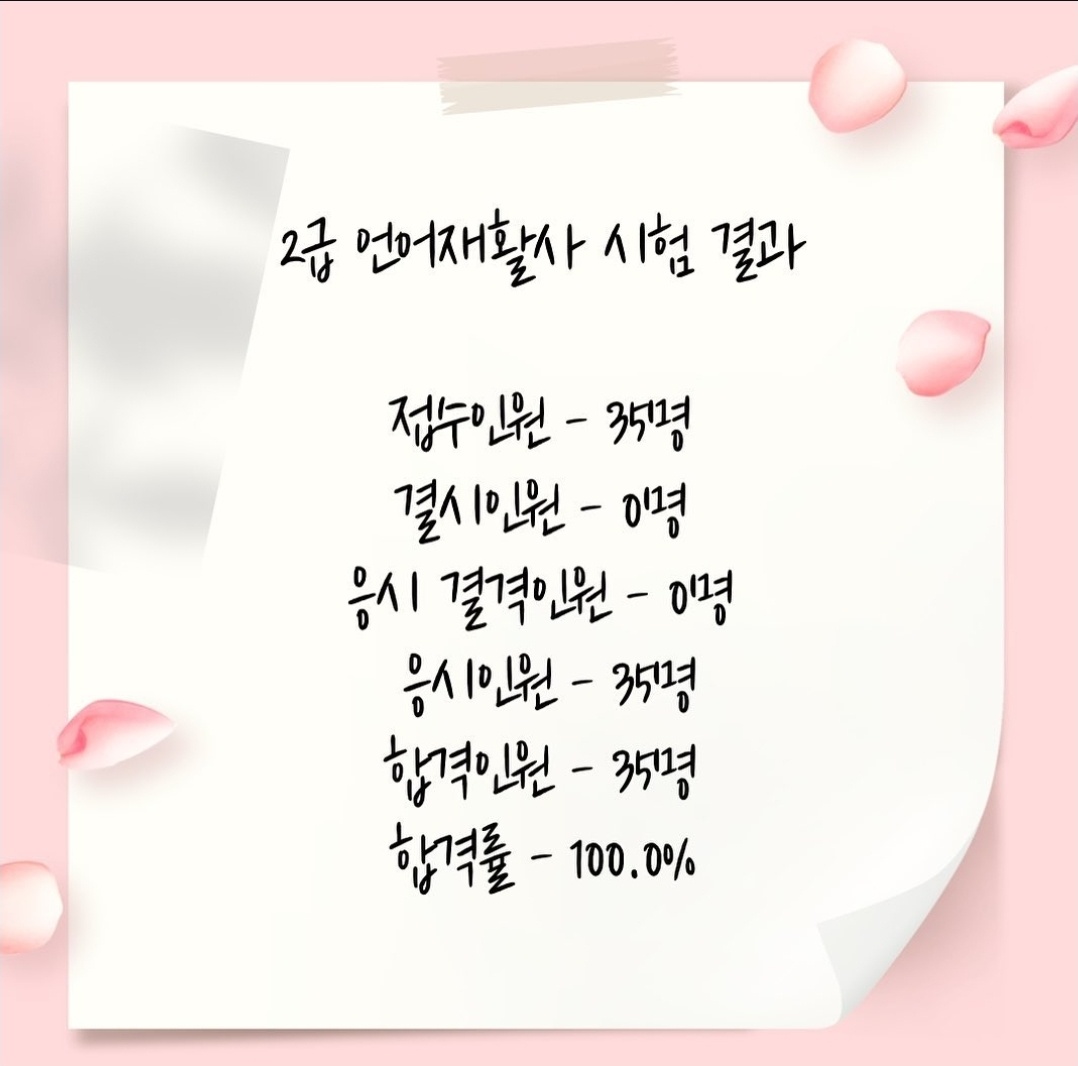 2급 언어재활사 시험 결과
접수인원 - 35명
결시인원 - 0명
응시 결격인원 - 0명
응시인원 - 35명
합격인원 - 35명
합격률 - 100.0%